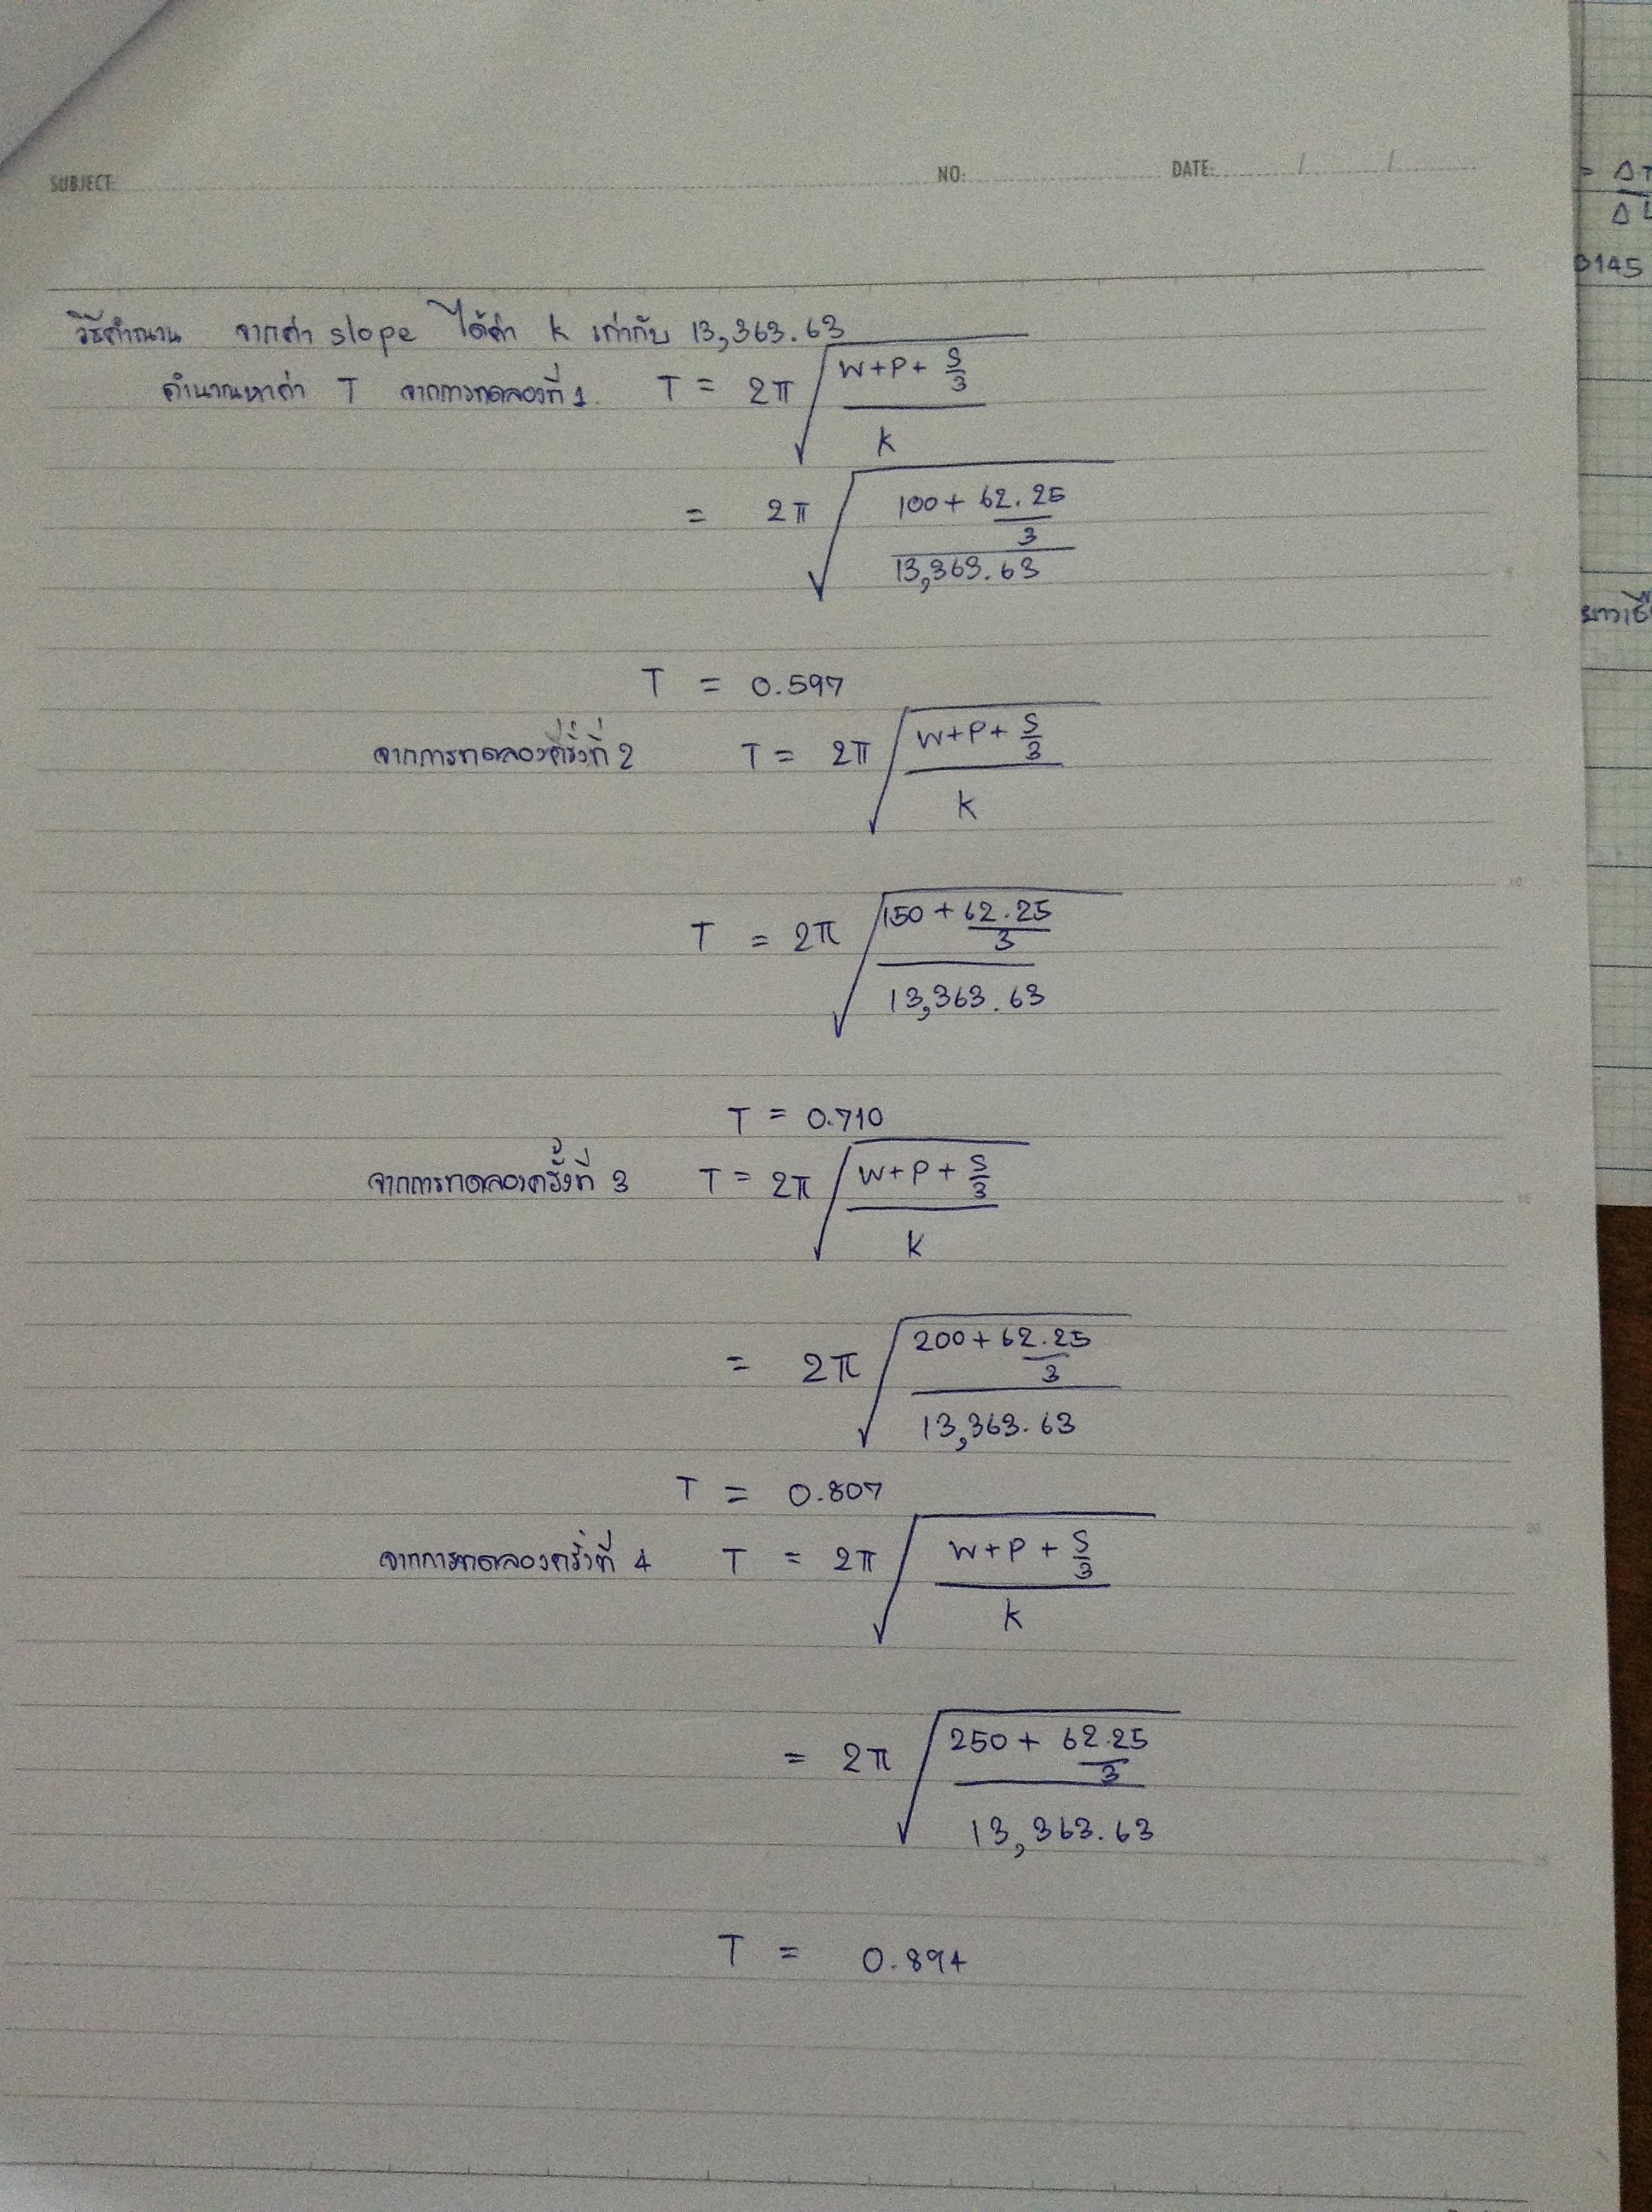 SUBJECT: NO: DATE: / /
วิธีคำณวน จากค่า slope ได้ค่า k เท่ากับ 13,363.63
คำนวณหาค่า T จากการทดลองที่ 1. T = 2π √((W+P+ S/3)/k)
= 2π √((100 + 62.25/3)/13,363.63)
T = 0.597
จากการทดลองครั้งที่ 2 T = 2π √((W+P+ S/3)/k)
T = 2π √((150 + 62.25/3)/13,363.63)
T = 0.710
จากการทดลองครั้งที่ 3 T = 2π √((W+P+ S/3)/k)
= 2π √((200 + 62.25/3)/13,363.63)
T = 0.807
จากการทดลองครั้งที่ 4 T = 2π √((W+P+ S/3)/k)
= 2π √((250 + 62.25/3)/13,363.63)
T = 0.894